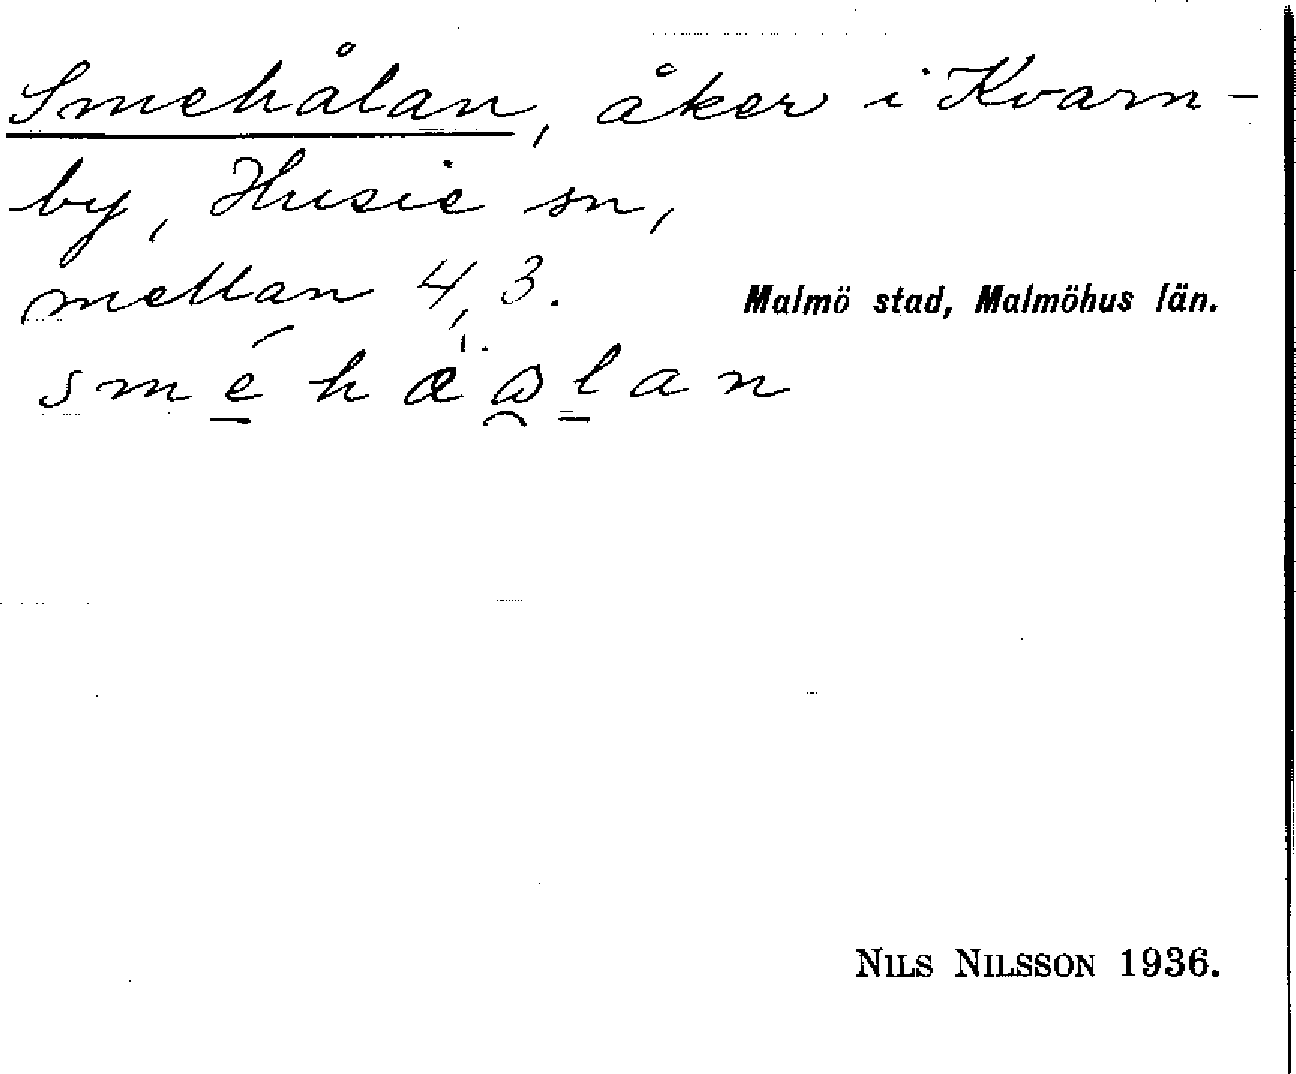 Smehålan, åker i Kvarn-
by, Husie sn,
mellan 4, 3.
Malmö stad, Malmöhus län.
NILS NILSSON 1936.